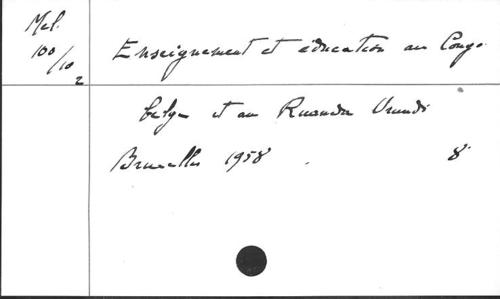 Mel.
100/10
2
Enseignement et éducation au Congo
belge et au Ruanda Urundi
Bruxelles 1958 . 8°